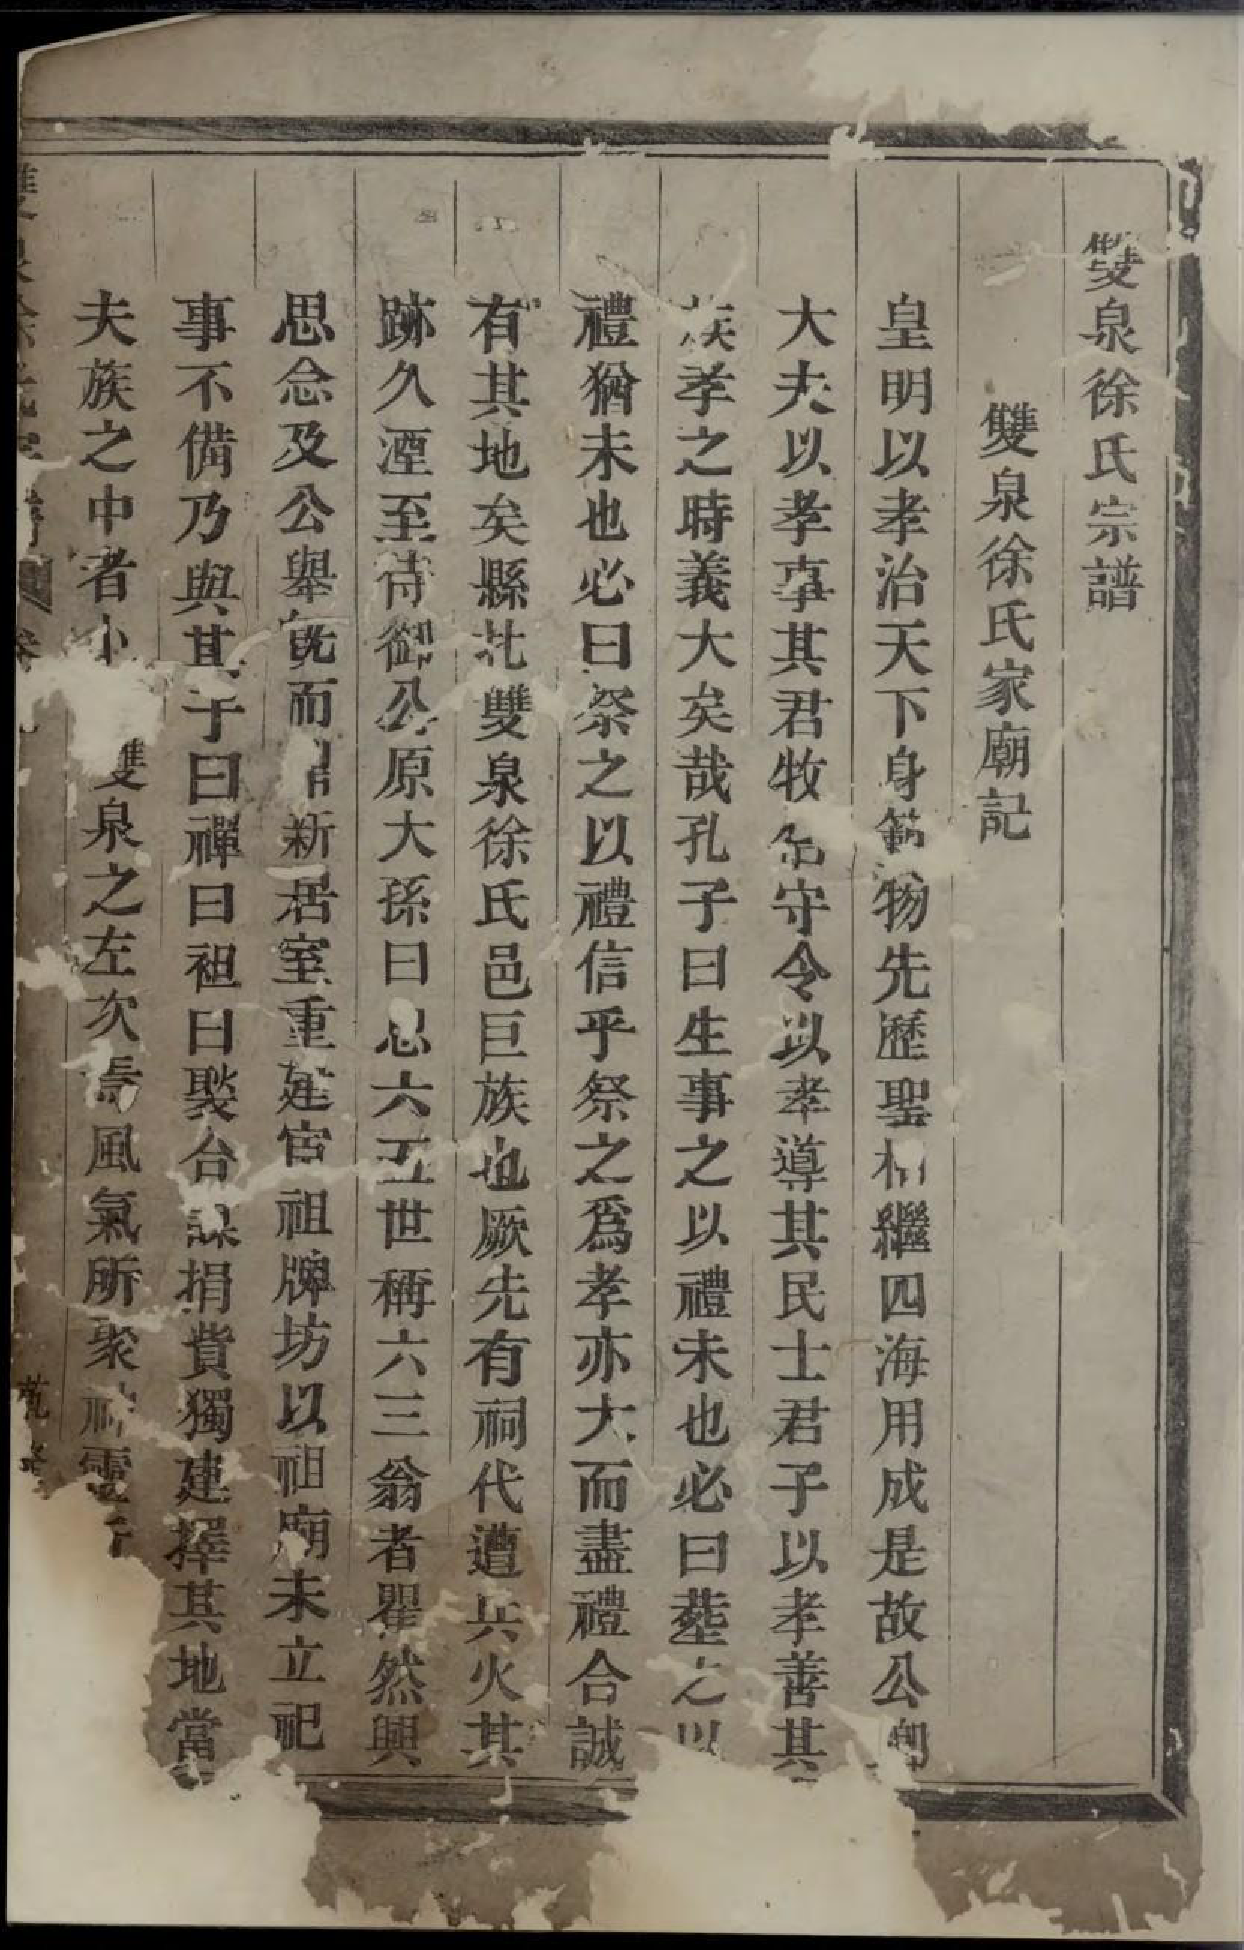 雙泉徐氏宗譜
雙泉徐氏家廟記
皇明以孝治天下身範物先歷聖相繼四海用成是故公卿
大夫以孝事其君牧伯守令以孝導其民士君子以孝善其
族孝之時義大矣哉孔子曰生事之以禮未也必曰塟之以
禮猶未也必曰祭之以禮信乎祭之爲孝亦大而盡禮合誠
有其地矣縣北雙泉徐氏邑巨族也厥先有祠代遭兵火其
跡久湮至侍御公原大孫曰忠六五世稱六三翁者瞿然興
思念及公舉既而鼎新居室重建宦祖牌坊以祖廟未立祀
事不備乃與其子曰禪曰袒曰褧台謀捐貲獨建擇其地當
夫族之中者卜雙泉之左次焉風氣所聚神靈
雙泉徐氏宗譜 卷